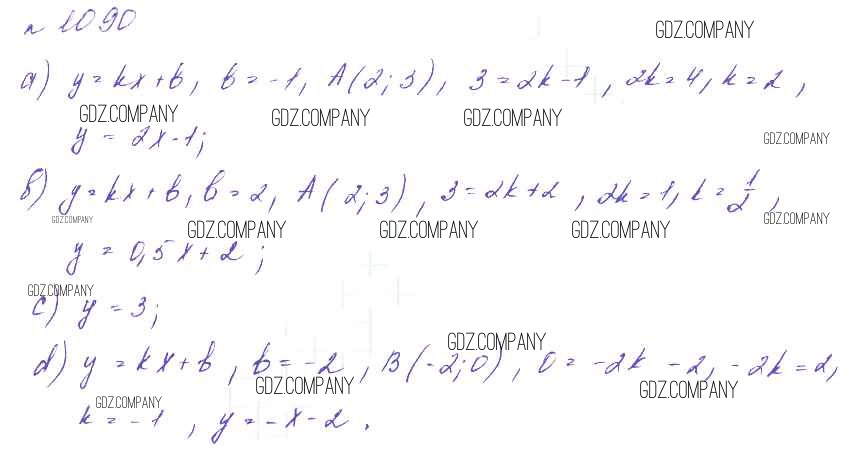 № 1090
GDZ.COMPANY
a) y = kx + b, b = -1, A(2; 3), 3 = 2k - 1, 2k = 4, k = 2,
GDZ.COMPANY GDZ.COMPANY GDZ.COMPANY
y = 2x - 1;
GDZ.COMPANY
b) y = kx + b, b = 2, A(2; 3), 3 = 2k + 2, 2k = 1, k = 1/2,
GDZ.COMPANY GDZ.COMPANY
GDZ.COMPANY GDZ.COMPANY GDZ.COMPANY
y = 0,5x + 2;
GDZ.COMPANY
c) y = 3;
GDZ.COMPANY
d) y = kx + b, b = -2, B(-2; 0), 0 = -2k - 2, -2k = 2,
GDZ.COMPANY GDZ.COMPANY
GDZ.COMPANY
k = -1, y = -x - 2.